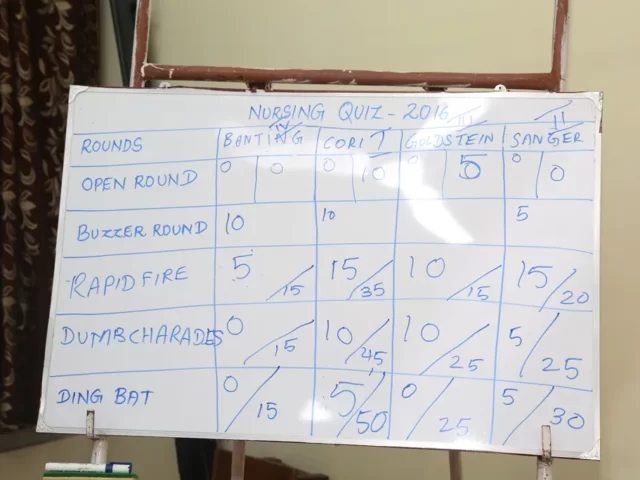 NURSING QUIZ - 2016
IV I III II
ROUNDS BANTING CORI GOLDSTEIN SANGER
OPEN ROUND 0 0 0 10 0 5 0 0
BUZZER ROUND 10 10 5
RAPID FIRE 5/15 15/35 10/15 15/20
DUMBCHARADES 0/15 10/45 10/25 5/25
DING BAT 0/15 5/50 0/25 5/30